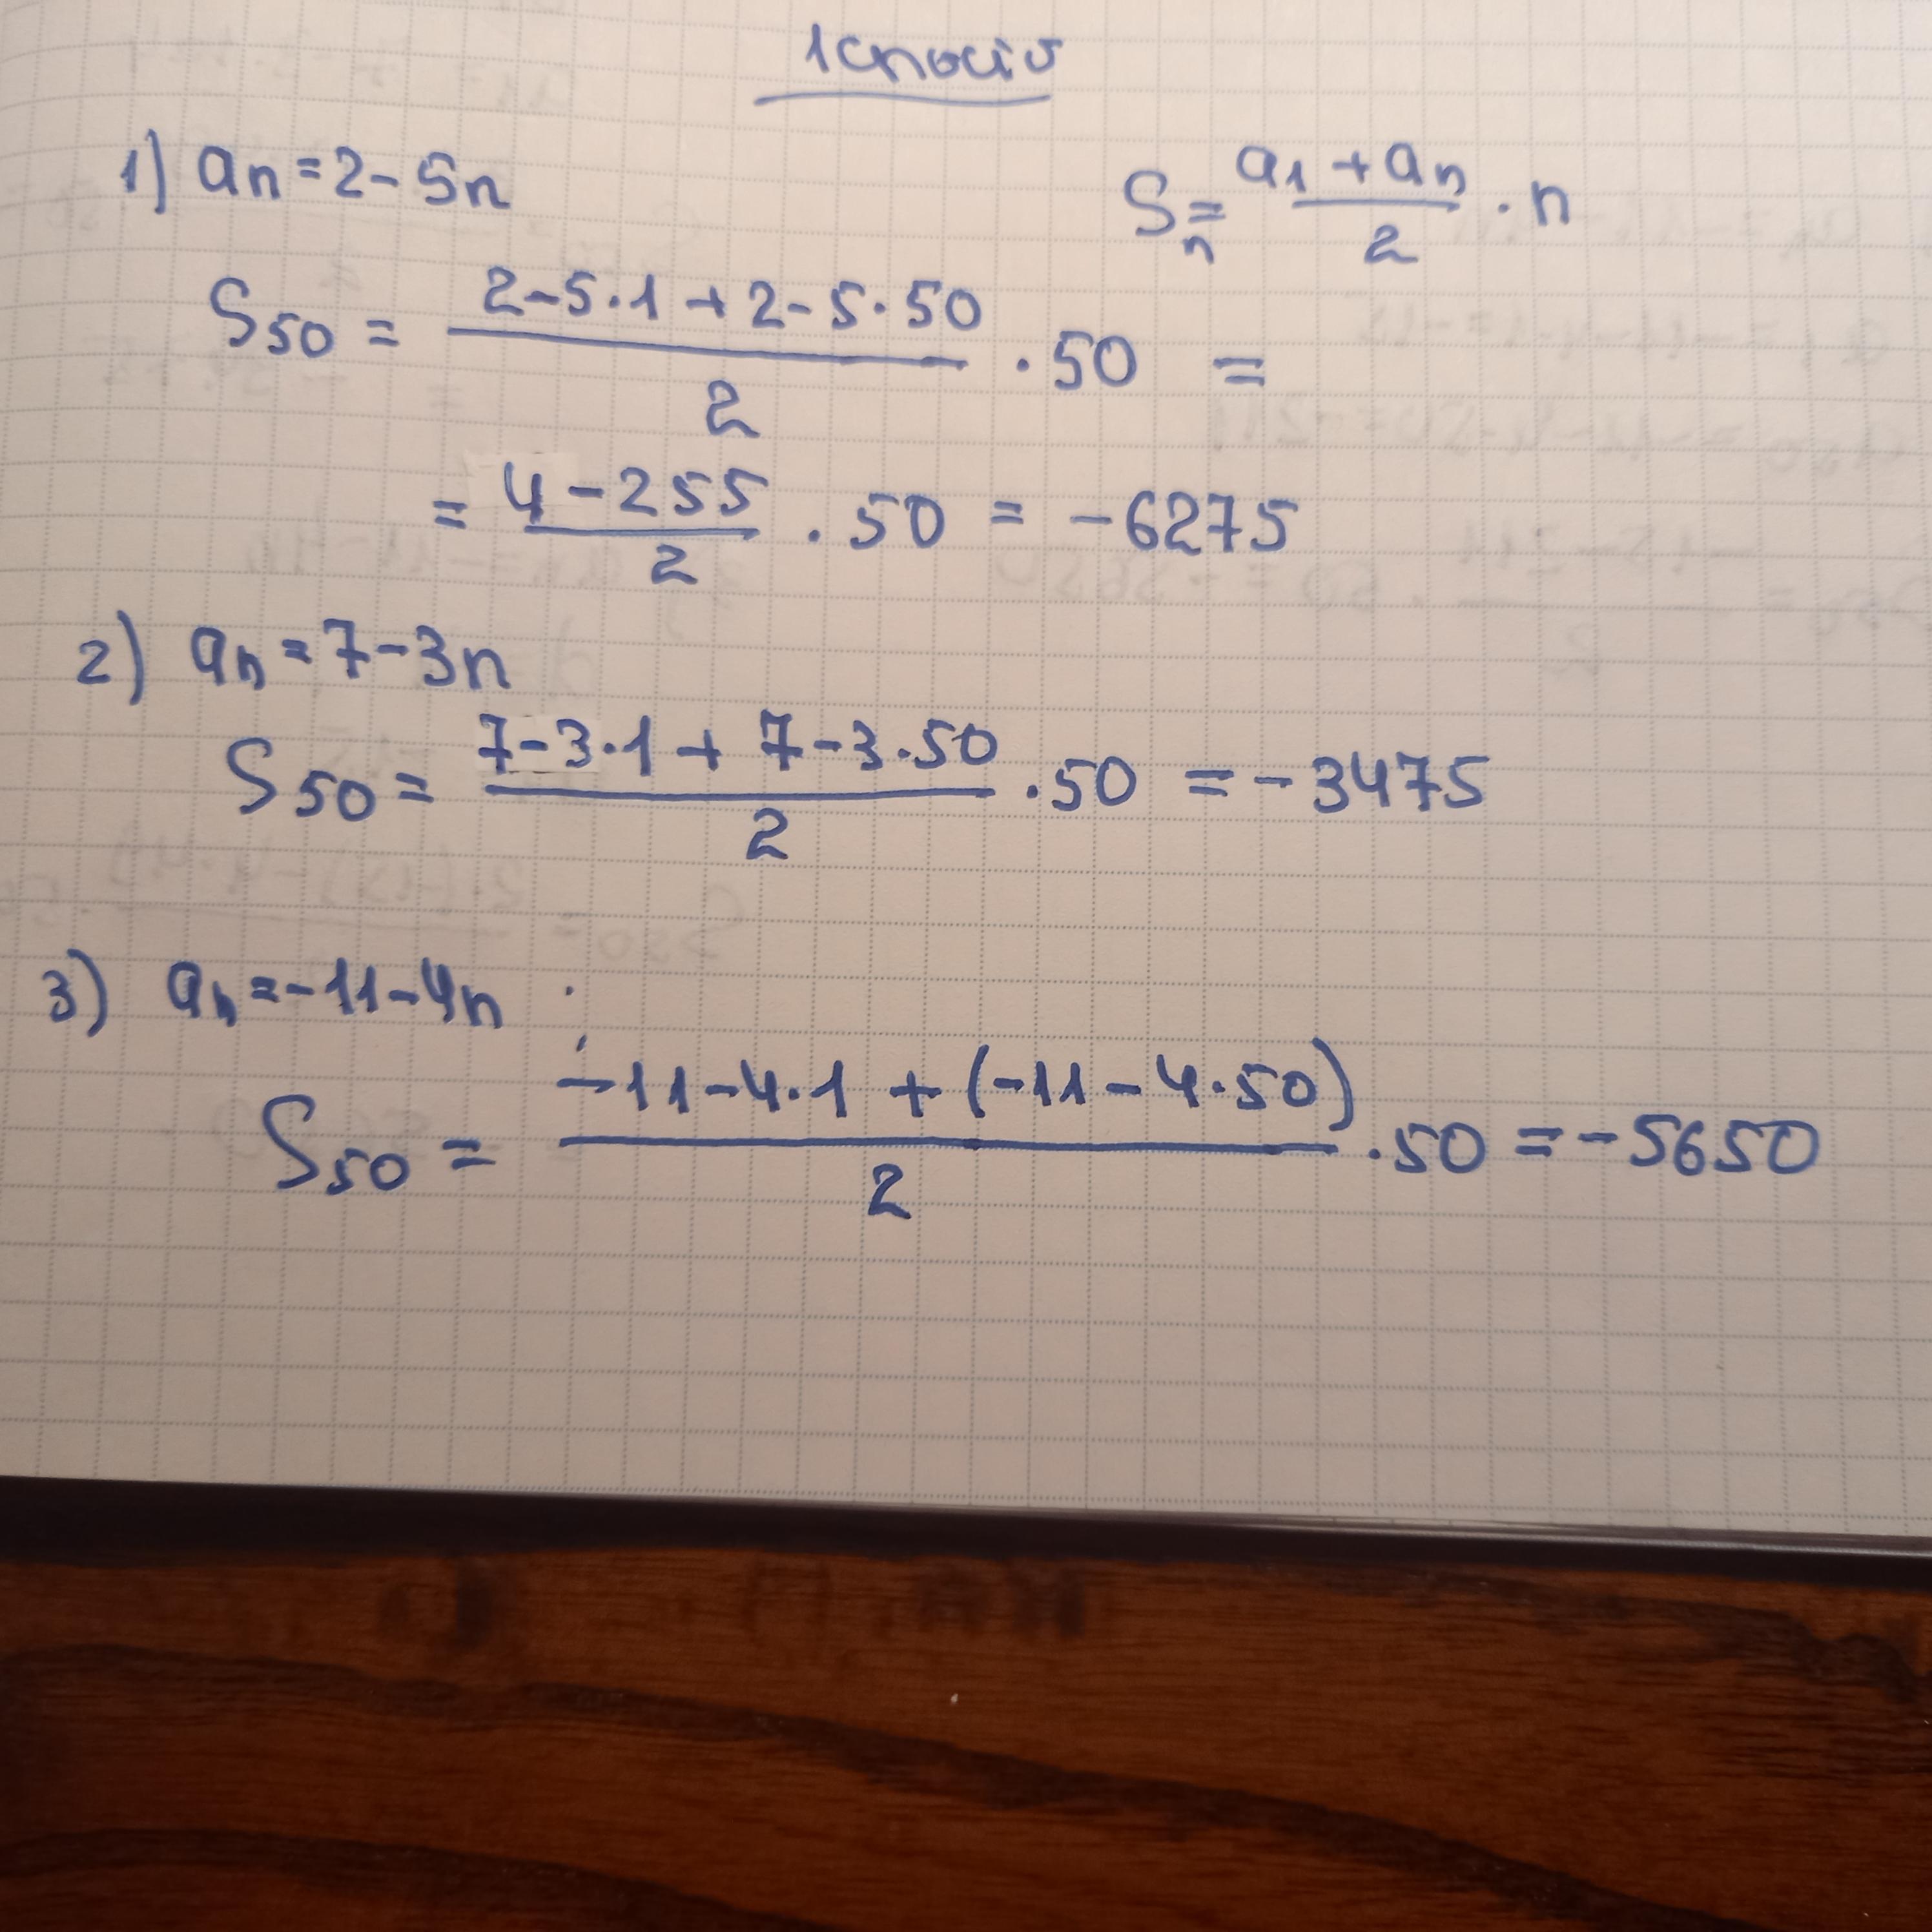 1 спосіб
1) an = 2 - 5n
Sn = (a1 + an)/2 · n
S50 = (2 - 5·1 + 2 - 5·50)/2 · 50 =
= (4 - 255)/2 · 50 = -6275
2) an = 7 - 3n
S50 = (7 - 3·1 + 7 - 3·50)/2 · 50 = -3475
3) an = -11 - 4n
S50 = (-11 - 4·1 + (-11 - 4·50))/2 · 50 = -5650